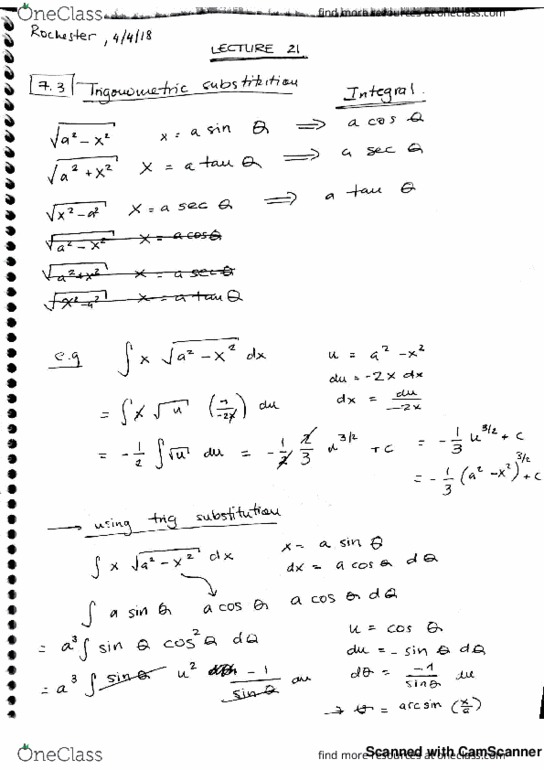 OneClass find more resources at oneclass.com
Rochester, 4/4/18
LECTURE 21
7.3 Trigonometric substitution Integral.
√(a² - x²) x = a sin θ ⇒ a cos θ
√(a² + x²) x = a tan θ ⇒ a sec θ
√(x² - a²) x = a sec θ ⇒ a tan θ
√(a² - x²) x = a cos θ
√(a² + x²) x = a sec θ
√(x² - a²) x = a tan θ
e.g ∫ x √(a² - x²) dx u = a² - x²
du = -2x dx
= ∫ x √u (1/-2x) du dx = du/-2x
= -1/2 ∫ √u du = -1/2 2/3 u^3/2 + c = -1/3 u^3/2 + c
= -1/3 (a² - x²)^3/2 + c
→ using trig substitution
∫ x √(a² - x²) dx x = a sin θ
dx = a cos θ dθ
∫ a sin θ a cos θ a cos θ dθ
= a³ ∫ sin θ cos² θ dθ u = cos θ
du = - sin θ dθ
= a³ ∫ sin θ u² -1/sin θ du dθ = -1/sin θ du
→ θ = arcsin (x/a)
Scanned with CamScanner
OneClass find more resources at oneclass.com